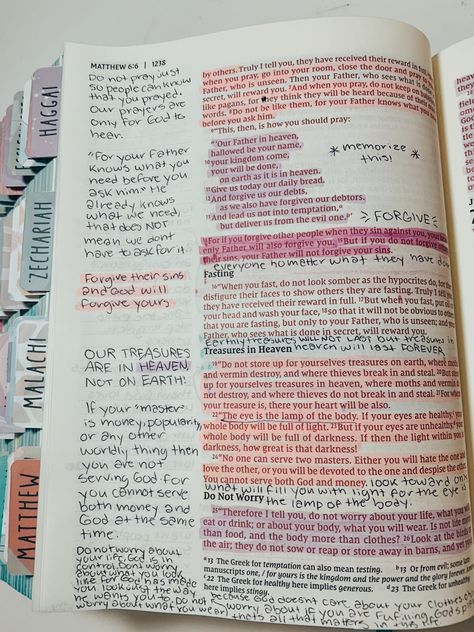 MATTHEW 6:6 | 1238
HAGGAI
ZECHARIAH
MALACHI
MATTHEW
Do not pray just
so people can know
that you prayed.
Our prayers are
only for God to
hear.
"For your Father
knows what you
need before you
ask him" He
already knows
what we need,
that does NOT
mean we dont
have to ask for it
Forgive their sins
and God will
forgive yours
OUR TREASURES
ARE IN HEAVEN
NOT ON EARTH!
If your "master"
is money, popularity
or any other
worldly thing then
you are not
serving God for
you cannot serve
both money and
God at the same
time.
Do not worry about
your life; God is in
control. Dont worry
about what you look
like for God has made
you look just the way
he wants you to. Do not
worry about what you wear
because God doesn't care about your clothes
worry about if you are fulfilling God's
thats all that matters in this life
by others. Truly I tell you, they have received their reward in full.
when you pray, go into your room, close the door and pray to
Father, who is unseen. Then your Father, who sees what is done
secret, will reward you. ⁷And when you pray, do not keep on
like pagans, for they think they will be heard because of their many
words. ⁸Do not be like them, for your Father knows what you need
before you ask him.
⁹"This, then, is how you should pray:
"'Our Father in heaven,
hallowed be your name,
¹⁰your kingdom come,
your will be done,
on earth as it is in heaven.
¹¹Give us today our daily bread.
¹²And forgive us our debts,
as we also have forgiven our debtors.
¹³And lead us not into temptation,ᵃ
but deliver us from the evil one.ᵇ'
* memorize this! *
> FORGIVE <
¹⁴For if you forgive other people when they sin against you, your
enly Father will also forgive you. ¹⁵But if you do not forgive
their sins, your Father will not forgive your sins.
everyone no matter what they have done
Fasting
¹⁶"When you fast, do not look somber as the hypocrites do, for they
disfigure their faces to show others they are fasting. Truly I tell
they have received their reward in full. ¹⁷But when you fast, put oil
your head and wash your face, ¹⁸so that it will not be obvious to others
that you are fasting, but only to your Father, who is unseen; and your
Father, who sees what is done in secret, will reward you.
Earthly treasures WILL NOT LAST but treasures in
Treasures in Heaven
heaven will last FOREVER
¹⁹"Do not store up for yourselves treasures on earth, where moths
and vermin destroy, and where thieves break in and steal. ²⁰But store
up for yourselves treasures in heaven, where moths and vermin do
not destroy, and where thieves do not break in and steal. ²¹For where
your treasure is, there your heart will be also.
²²"The eye is the lamp of the body. If your eyes are healthy,ᶜ
whole body will be full of light. ²³But if your eyes are unhealthy,ᵈ
whole body will be full of darkness. If then the light within you
darkness, how great is that darkness!
²⁴"No one can serve two masters. Either you will hate the one and
love the other, or you will be devoted to the one and despise the other.
You cannot serve both God and money.
look toward only
what will fill you with light for the eye is
Do Not Worry
the lamp of the body.
²⁵"Therefore I tell you, do not worry about your life, what you will
eat or drink; or about your body, what you will wear. Is not life
than food, and the body more than clothes? ²⁶Look at the birds
the air; they do not sow or reap or store away in barns, and yet
ᵃ13 The Greek for temptation can also mean testing. ᵇ13 Or from evil; some late
manuscripts one, / for yours is the kingdom and the power and the glory forever.
ᶜ22 The Greek for healthy here implies generous.
here implies stingy.